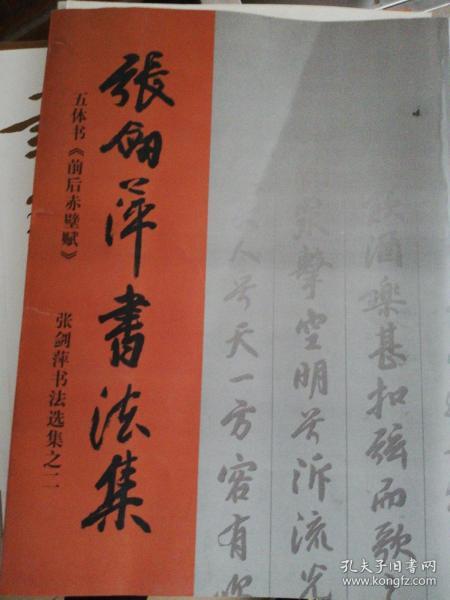 張劍萍書法集
五体书《前后赤壁赋》
张剑萍书法选集之二
飲酒樂甚扣弦而歌
槳擊空明兮泝流光
人兮天一方客有吹
孔夫子旧书网
www.kongfz.com